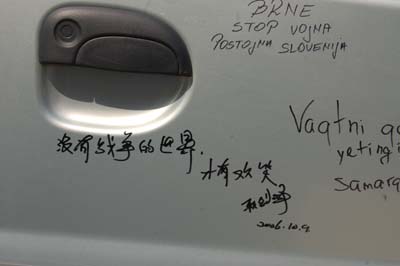 BRNE
STOP VOJNA
POSTOJNA SLOVENIJA
Vaqtni
yeting
samarq
没有战争的世界.
才有欢笑
2006.10.9